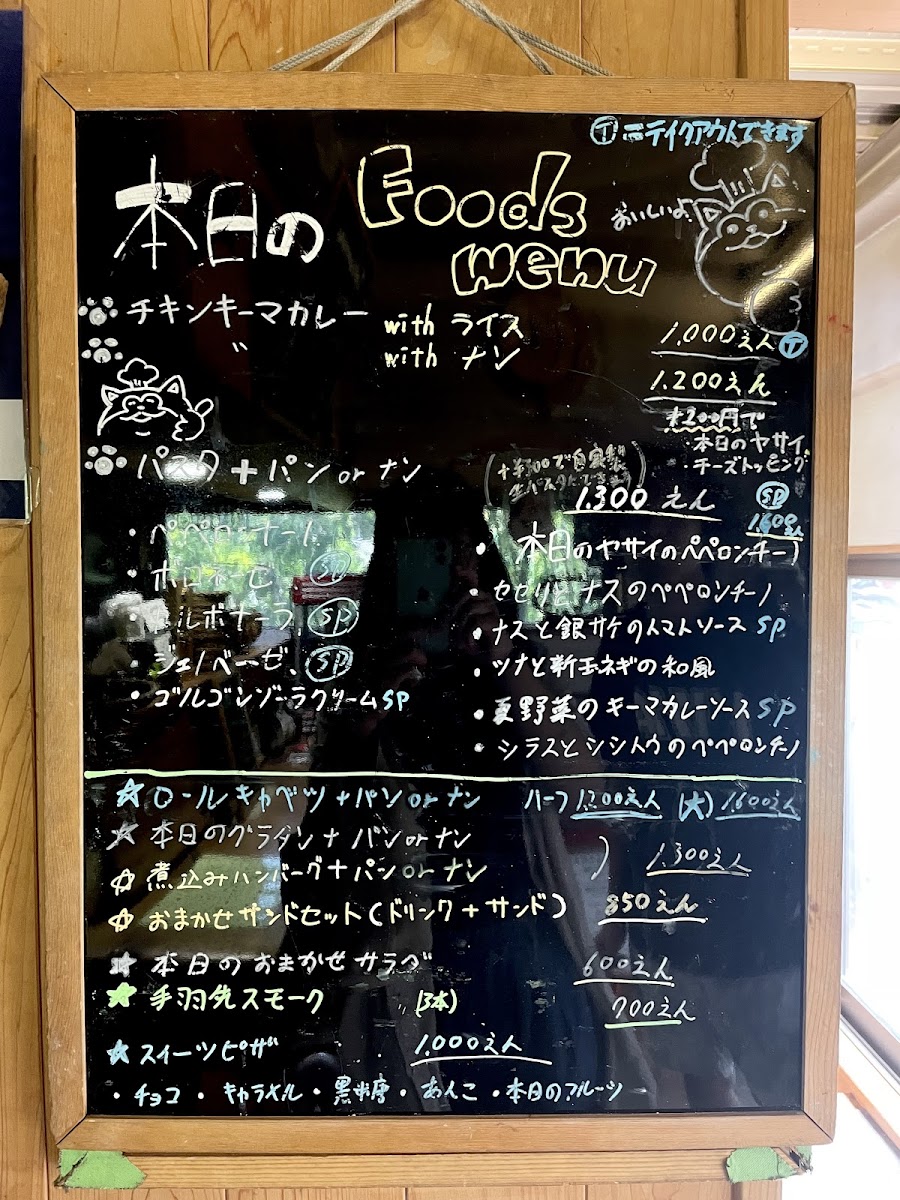 Ⓣ=テイクアウトできます
本日の Foods menu
おいしいよ
チキンキーマカレー with ライス 1,000えん Ⓣ
〃 with ナン 1,200えん
+200円で
本日のヤサイ
・チーズトッピング
パスタ+パン or ナン (+¥300で自家製
生パスタにできます)
1,300えん SP 1,600えん
・ペペロンチーノ
・ボロネーゼ SP
・カルボナーラ SP
・ジェノベーゼ SP
・ゴルゴンゾーラクリーム SP
・本日のヤサイのペペロンチーノ
・セセリとナスのペペロンチーノ
・ナスと銀サケのトマトソース SP
・ツナと新玉ネギの和風
・夏野菜のキーマカレーソース SP
・シラスとシシトウのペペロンチーノ
☆ロールキャベツ+パン or ナン ハーフ 1,200えん (大) 1,600えん
☆本日のグラタン+パン or ナン
☆煮込みハンバーグ+パン or ナン ) 1,300えん
☆おまかせサンドセット(ドリンク+サンド) 850えん
☆本日のおまかせサラダ 600えん
☆手羽先スモーク (3本) 700えん
☆スイーツピザ 1,000えん
・チョコ・キャラメル・黒糖・あんこ・本日のフルーツ